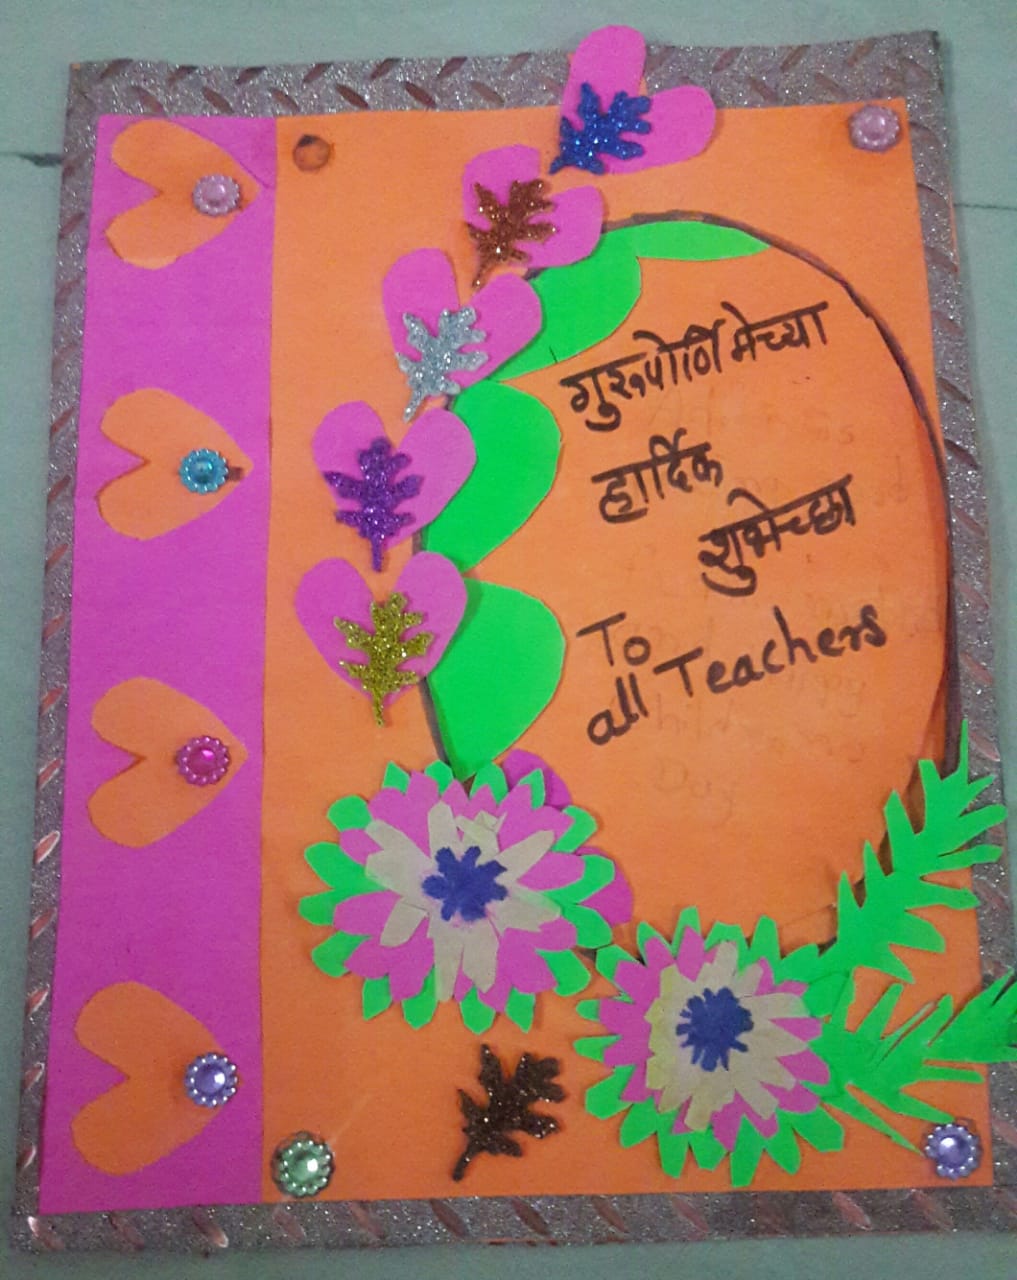 गुरूपोर्णिमेच्या
हार्दिक
शुभेच्छा
To
all Teachers